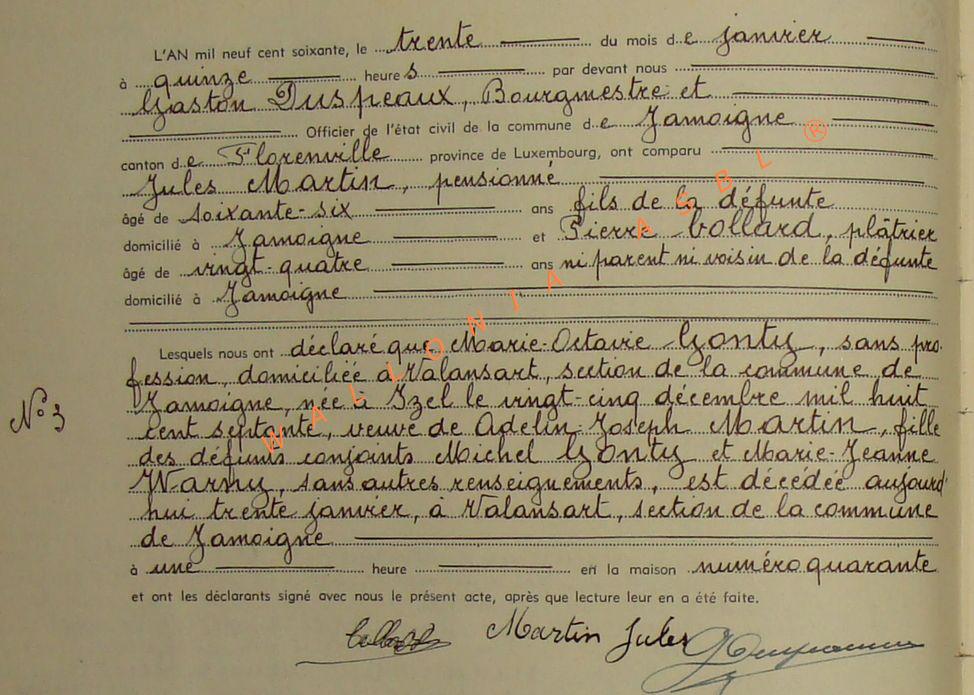 L'AN mil neuf cent soixante, le trente du mois de janvier
à quinze heures par devant nous
Gaston Duspeaux, Bourgmestre et
Officier de l'état civil de la commune de Jamoigne
canton de Florenville province de Luxembourg, ont comparu
Jules Martin, pensionné
âgé de soixante-six ans fils de la défunte
domicilié à Jamoigne et Pierre Collard, plâtrier
âgé de vingt-quatre ans ni parent ni voisin de la défunte
domicilié à Jamoigne
Lesquels nous ont déclaré que Marie-Octavie Gonty, sans pro-
fession, domiciliée à Valansart, section de la commune de
Jamoigne, née à Izel le vingt-cinq décembre mil huit
N° 3
cent septante, veuve de Adelin-Joseph Martin, fille
des défunts conjoints Michel Gonty et Marie-Jeanne
Warny, sans autres renseignements, est décédée aujourd'
hui trente janvier, à Valansart, section de la commune
de Jamoigne
à une heure en la maison numéro quarante
et ont les déclarants signé avec nous le présent acte, après que lecture leur en a été faite.
Martin Jules
WALLONIA ASBL ®